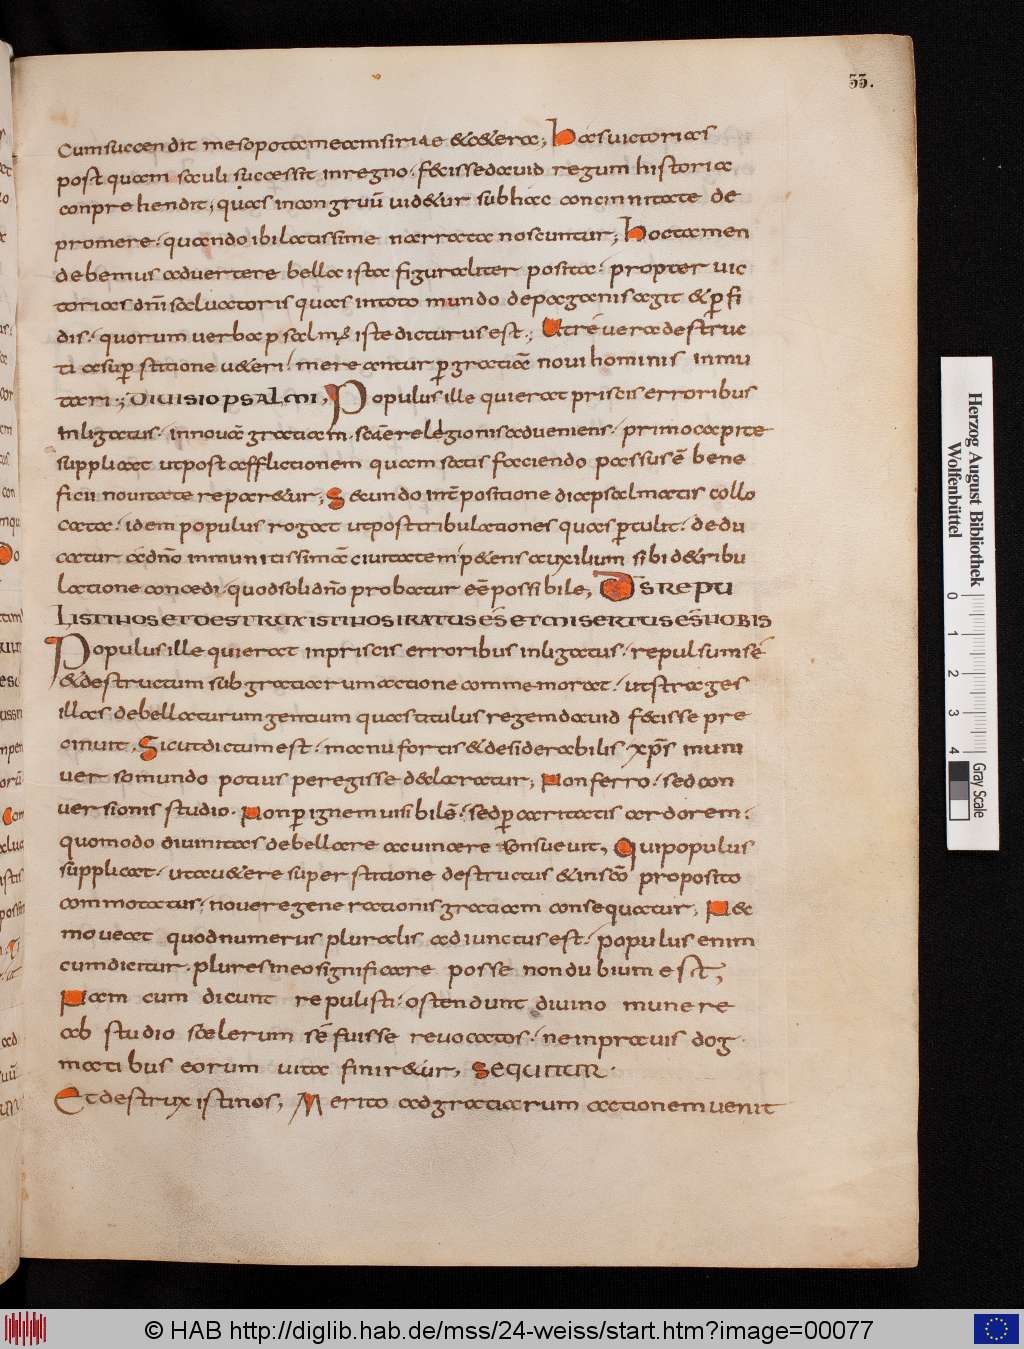 33.
Cum succendit mesopotameam siriae & c&era; Has uictorias
post quam sauli successit in regno · fecisse dauid regum historia
conprehendit; quas incongruū uid&ur sub hac concinnitate de
promere · quando ibi latissime narrata noscuntur; Hoc tamen
debemus aduertere bella ista figuraliter posita · propter uic
torias dn̄i saluatoris quas in toto mundo de paganis agit & ꝑfi
dis · quorum uerba psalmꝰ iste dicturus est; Ut re uera destruc
ti a suꝑstitione u&eri · mereantur ꝑ gratiā noui hominis inmu
tari; DIUISIO PSALMI, Populus ille qui erat priscis erroribus
inligatus · in nouā gratiam sc̄ae relegionis adueniens · primo capite
supplicat ut post afflictionem quam satis faciendo passus ē bene
ficii nouitate repar&ur; Secundo int̄positione diapsalmatis collo
cata · idem populus rogat ut post tribulationes quas ꝑtulit · dedu
catur a dn̄o in munitissimā ciuitatem · p&ens auxilium sibi de tribu
latione concedi · quod soli dn̄o probatur eē possibile; DS REPU
LISTI NOS ET DESTRUXISTI NOS IRATUS ES ET MISERTUS ES NOBIS
Populus ille qui erat in priscis erroribus inligatus · repulsum sē
& destructum sub gratiarum actione commemorat · ut strages
illas debellaturum gentium quas titulus regem dauid fecisse pre
cinuit · Sicut dictum est · manu fortis & desiderabilis xp̄s in uni
uerso mundo potius peregisse declaratur; Non ferro · sed con
uersionis studio · Non ꝑ ignem uisibilē · sed ꝑ caritatis ardorem ·
quomodo diuinitas debellare ac uincere consueuit, Qui populus
supplicat · ut a u&ere superstitione destructus & in sc̄o proposito
commotatus · noue regenerationis gratiam consequatur; Nec
moueat quod numerus pluralis adiunctus est · populus enim
cum dicitur · plures in eo significare posse non dubium est;
Nam cum dicunt repulisti · ostendunt diuino munere
ab studio scelerum sē fuisse reuocatos · ne in prauis dog
matibus eorum uita finir&ur, SEQUITUR ·
Et destruxisti nos, Merito ad gratiarum actionem uenit
Herzog August Bibliothek
Wolfenbüttel
0 1 2 3 4
Gray Scale
© HAB http://diglib.hab.de/mss/24-weiss/start.htm?image=00077